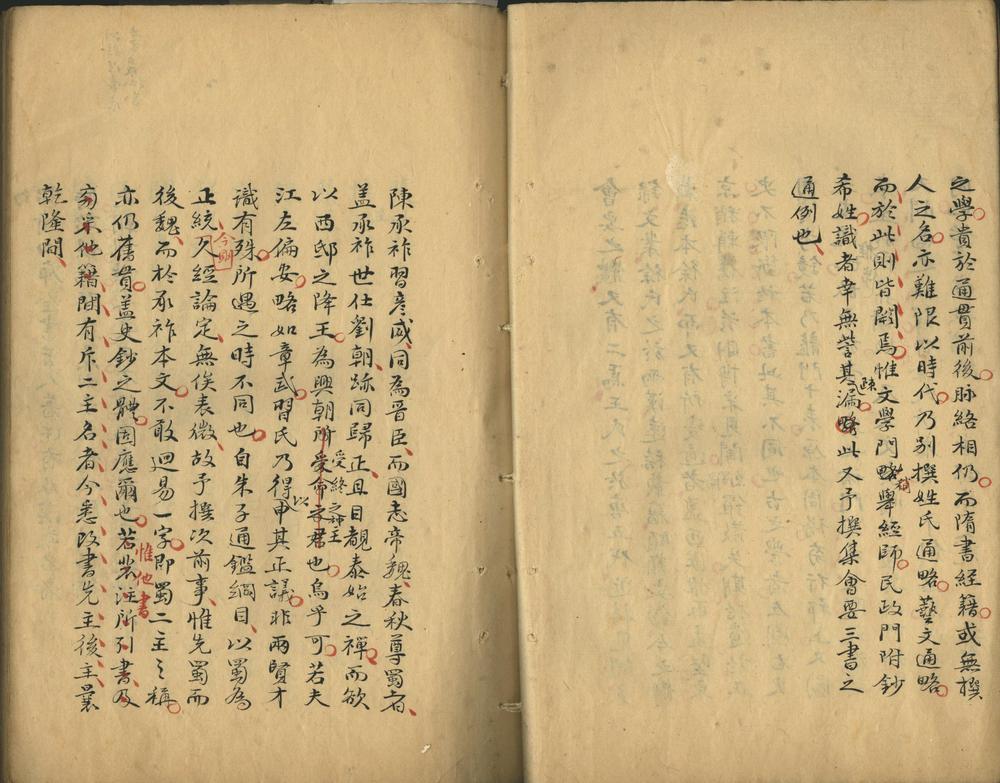 之學貴於通貫前後脈絡相仍而隋書經籍或無撰
人之名亦難限以時代乃別撰姓氏通略藝文通略
而於此則皆闕焉惟文學門略舉經師民政門附鈔
希姓識者幸無訾其疎漏此又予撰集會要三書之
通例也
陳承祚習彥威同為晉臣而國志帝魏春秋尊蜀者
蓋承祚世仕劉朝跡同歸正且目覩泰始之禪而欲
以西邸之降王為興朝所受終之神主也烏乎可若夫
江左偏安略如章武習氏乃得以申其正議非兩賢才
識有殊所遇之時不同也自朱子通鑑綱目以蜀為
正統今則久經論定無俟表微故予撰次前事惟先蜀而
後魏而於承祚本文不敢迴易一字即蜀二主之稱
亦仍舊貫蓋史鈔之體固應爾也若裴注所引書及
惟他書
旁采他籍間有斥二主名者今悉改書先主後主曩
乾隆間